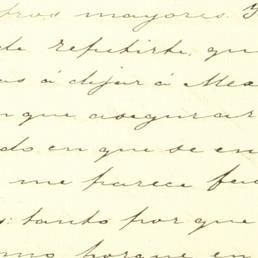 tros mayores. Y
de repetirte, que
as á dejar á Mex
que asegurar
do en que se en
me parece fea
s: tanto por que
omo porque en